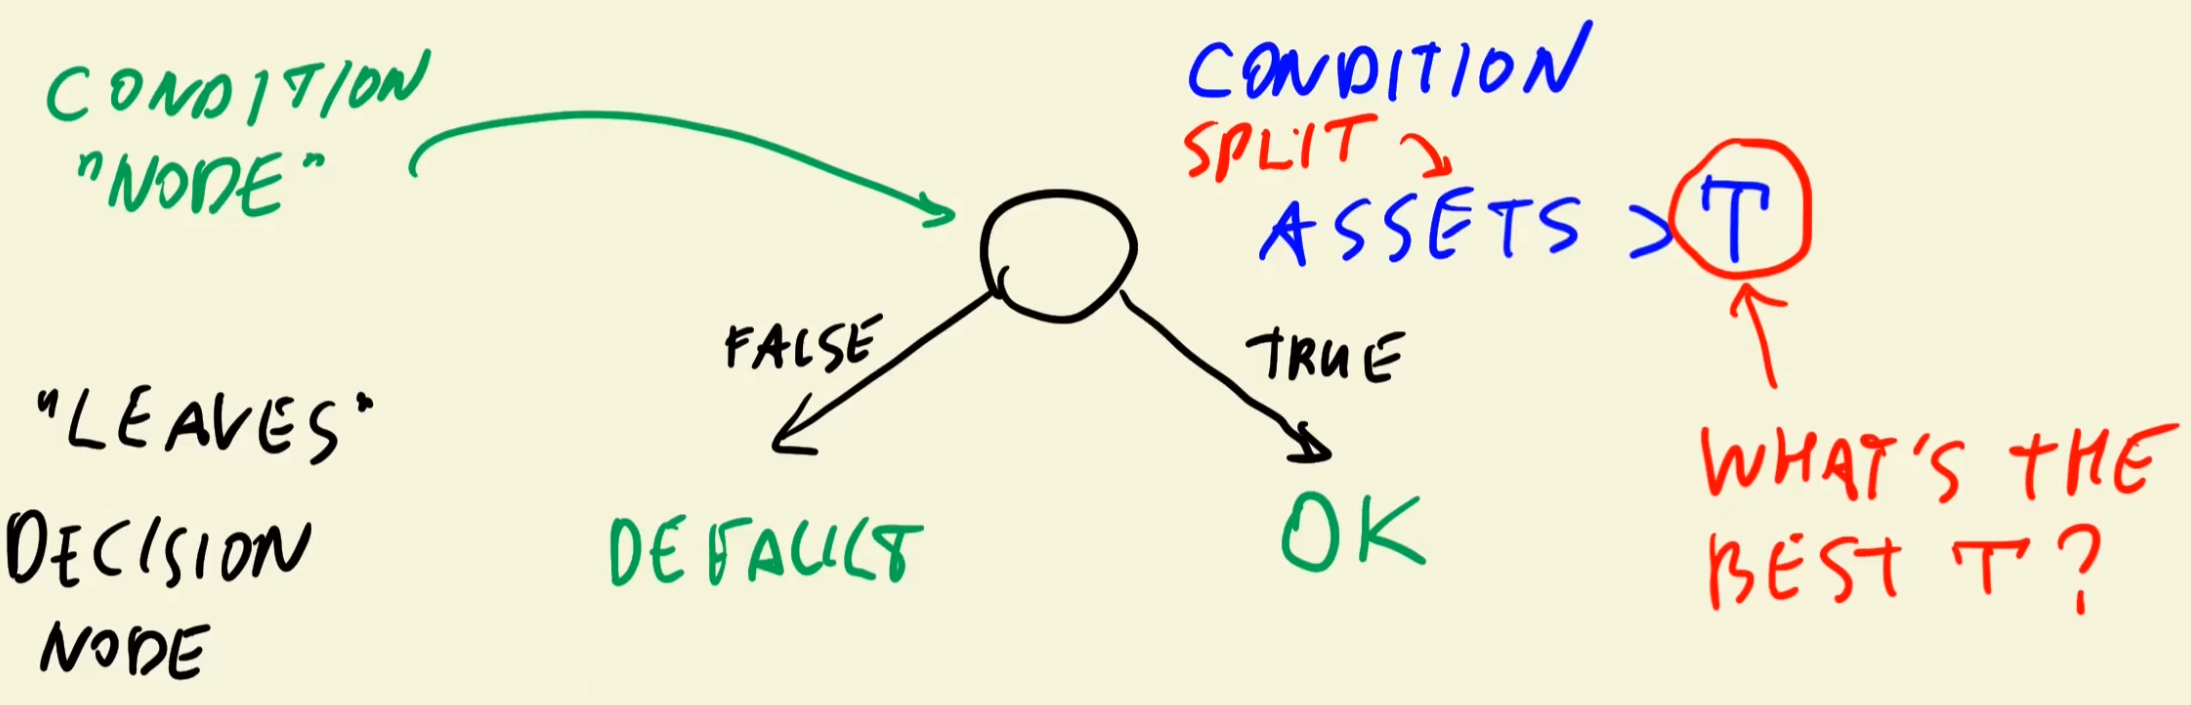 CONDITION
"NODE"
CONDITION
SPLIT
ASSETS > T
FALSE
TRUE
"LEAVES"
DECISION
NODE
DEFAULT
OK
WHAT'S THE
BEST T?